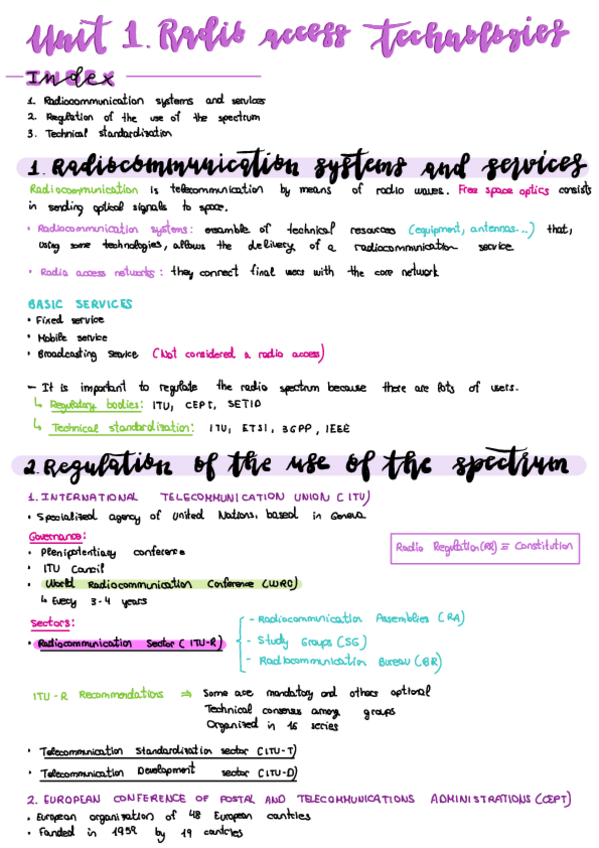 Unit 1. Radio access technologies
Index
1. Radiocommunication systems and services
2. Regulation of the use of the spectrum
3. Technical standardization
1. Radiocommunication systems and services
Radiocommunication is telecommunication by means of radio waves. Free space optics consists
in sending optical signals to space.
• Radiocommunication systems: ensamble of technical resources (equipment, antennas...) that,
using some technologies, allows the delivery of a radiocommunication service
• Radio access networks: they connect final users with the core network
BASIC SERVICES
• Fixed service
• Mobile service
• Broadcasting service (Not considered a radio access)
- It is important to regulate the radio spectrum because there are lots of users.
↳ Regulatory bodies: ITU, CEPT, SETID
↳ Technical standardization: ITU, ETSI, 3GPP, IEEE
2. Regulation of the use of the spectrum
1. INTERNATIONAL TELECOMMUNICATION UNION (ITU)
• Specialized agency of United Nations, based in Geneva
Governance:
• Plenipotentiary conference
• ITU Council
• World Radiocommunication Conference (WRC)
↳ Every 3-4 years
Radio Regulation (RR) ≡ Constitution
Sectors:
• Radiocommunication Sector (ITU-R)
- Radiocommunication Assemblies (RA)
- Study Groups (SG)
- Radiocommunication Bureau (BR)
ITU-R Recommendations ⇒ Some are mandatory and others optional
Technical consensus among groups
Organized in 16 series
• Telecommunication Standardization sector (ITU-T)
• Telecommunication Development sector (ITU-D)
2. EUROPEAN CONFERENCE OF POSTAL AND TELECOMMUNICATIONS ADMINISTRATIONS (CEPT)
• European organisation of 48 European countries
• Founded in 1959 by 19 countries